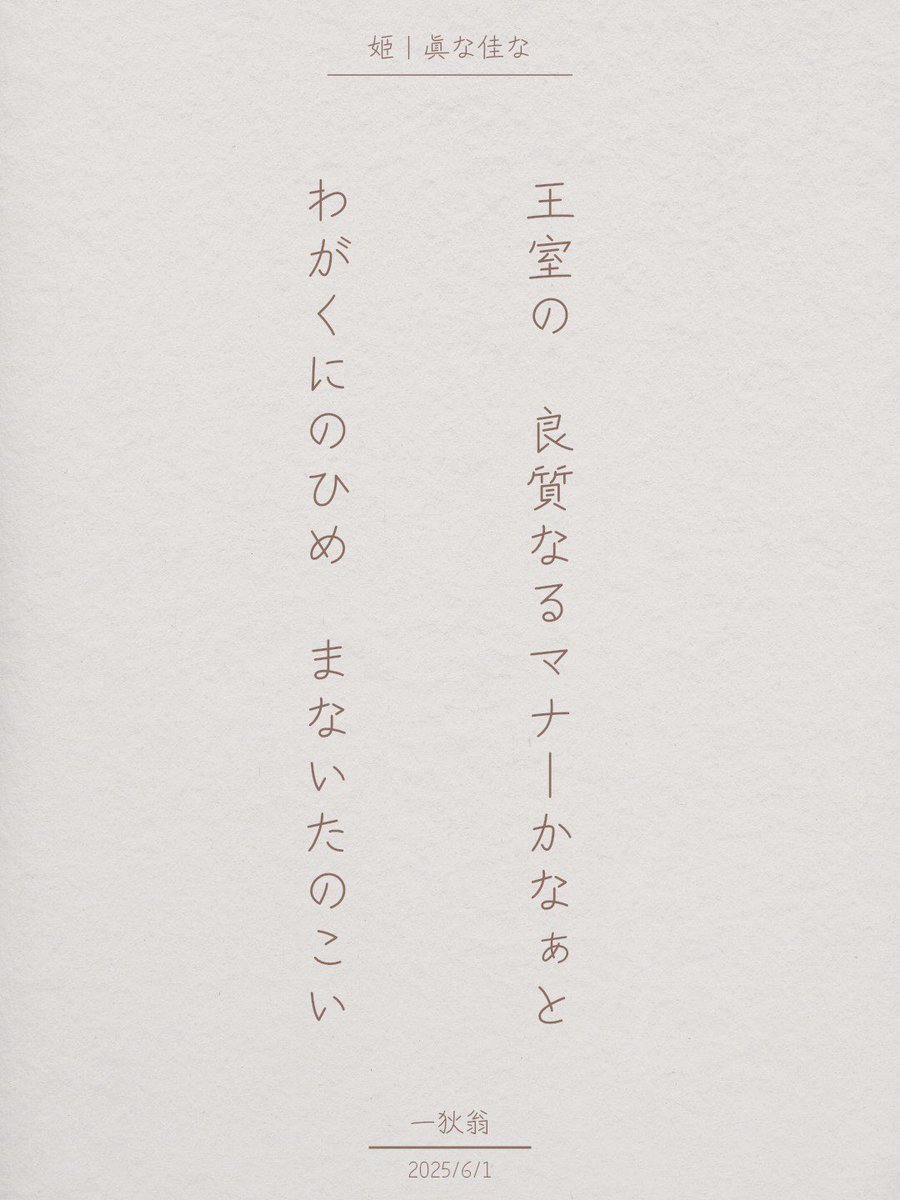 姫｜眞な佳な
王室の　良質なるマナーかなぁと
わがくにのひめ　まないたのこい
一狄翁
2025/6/1